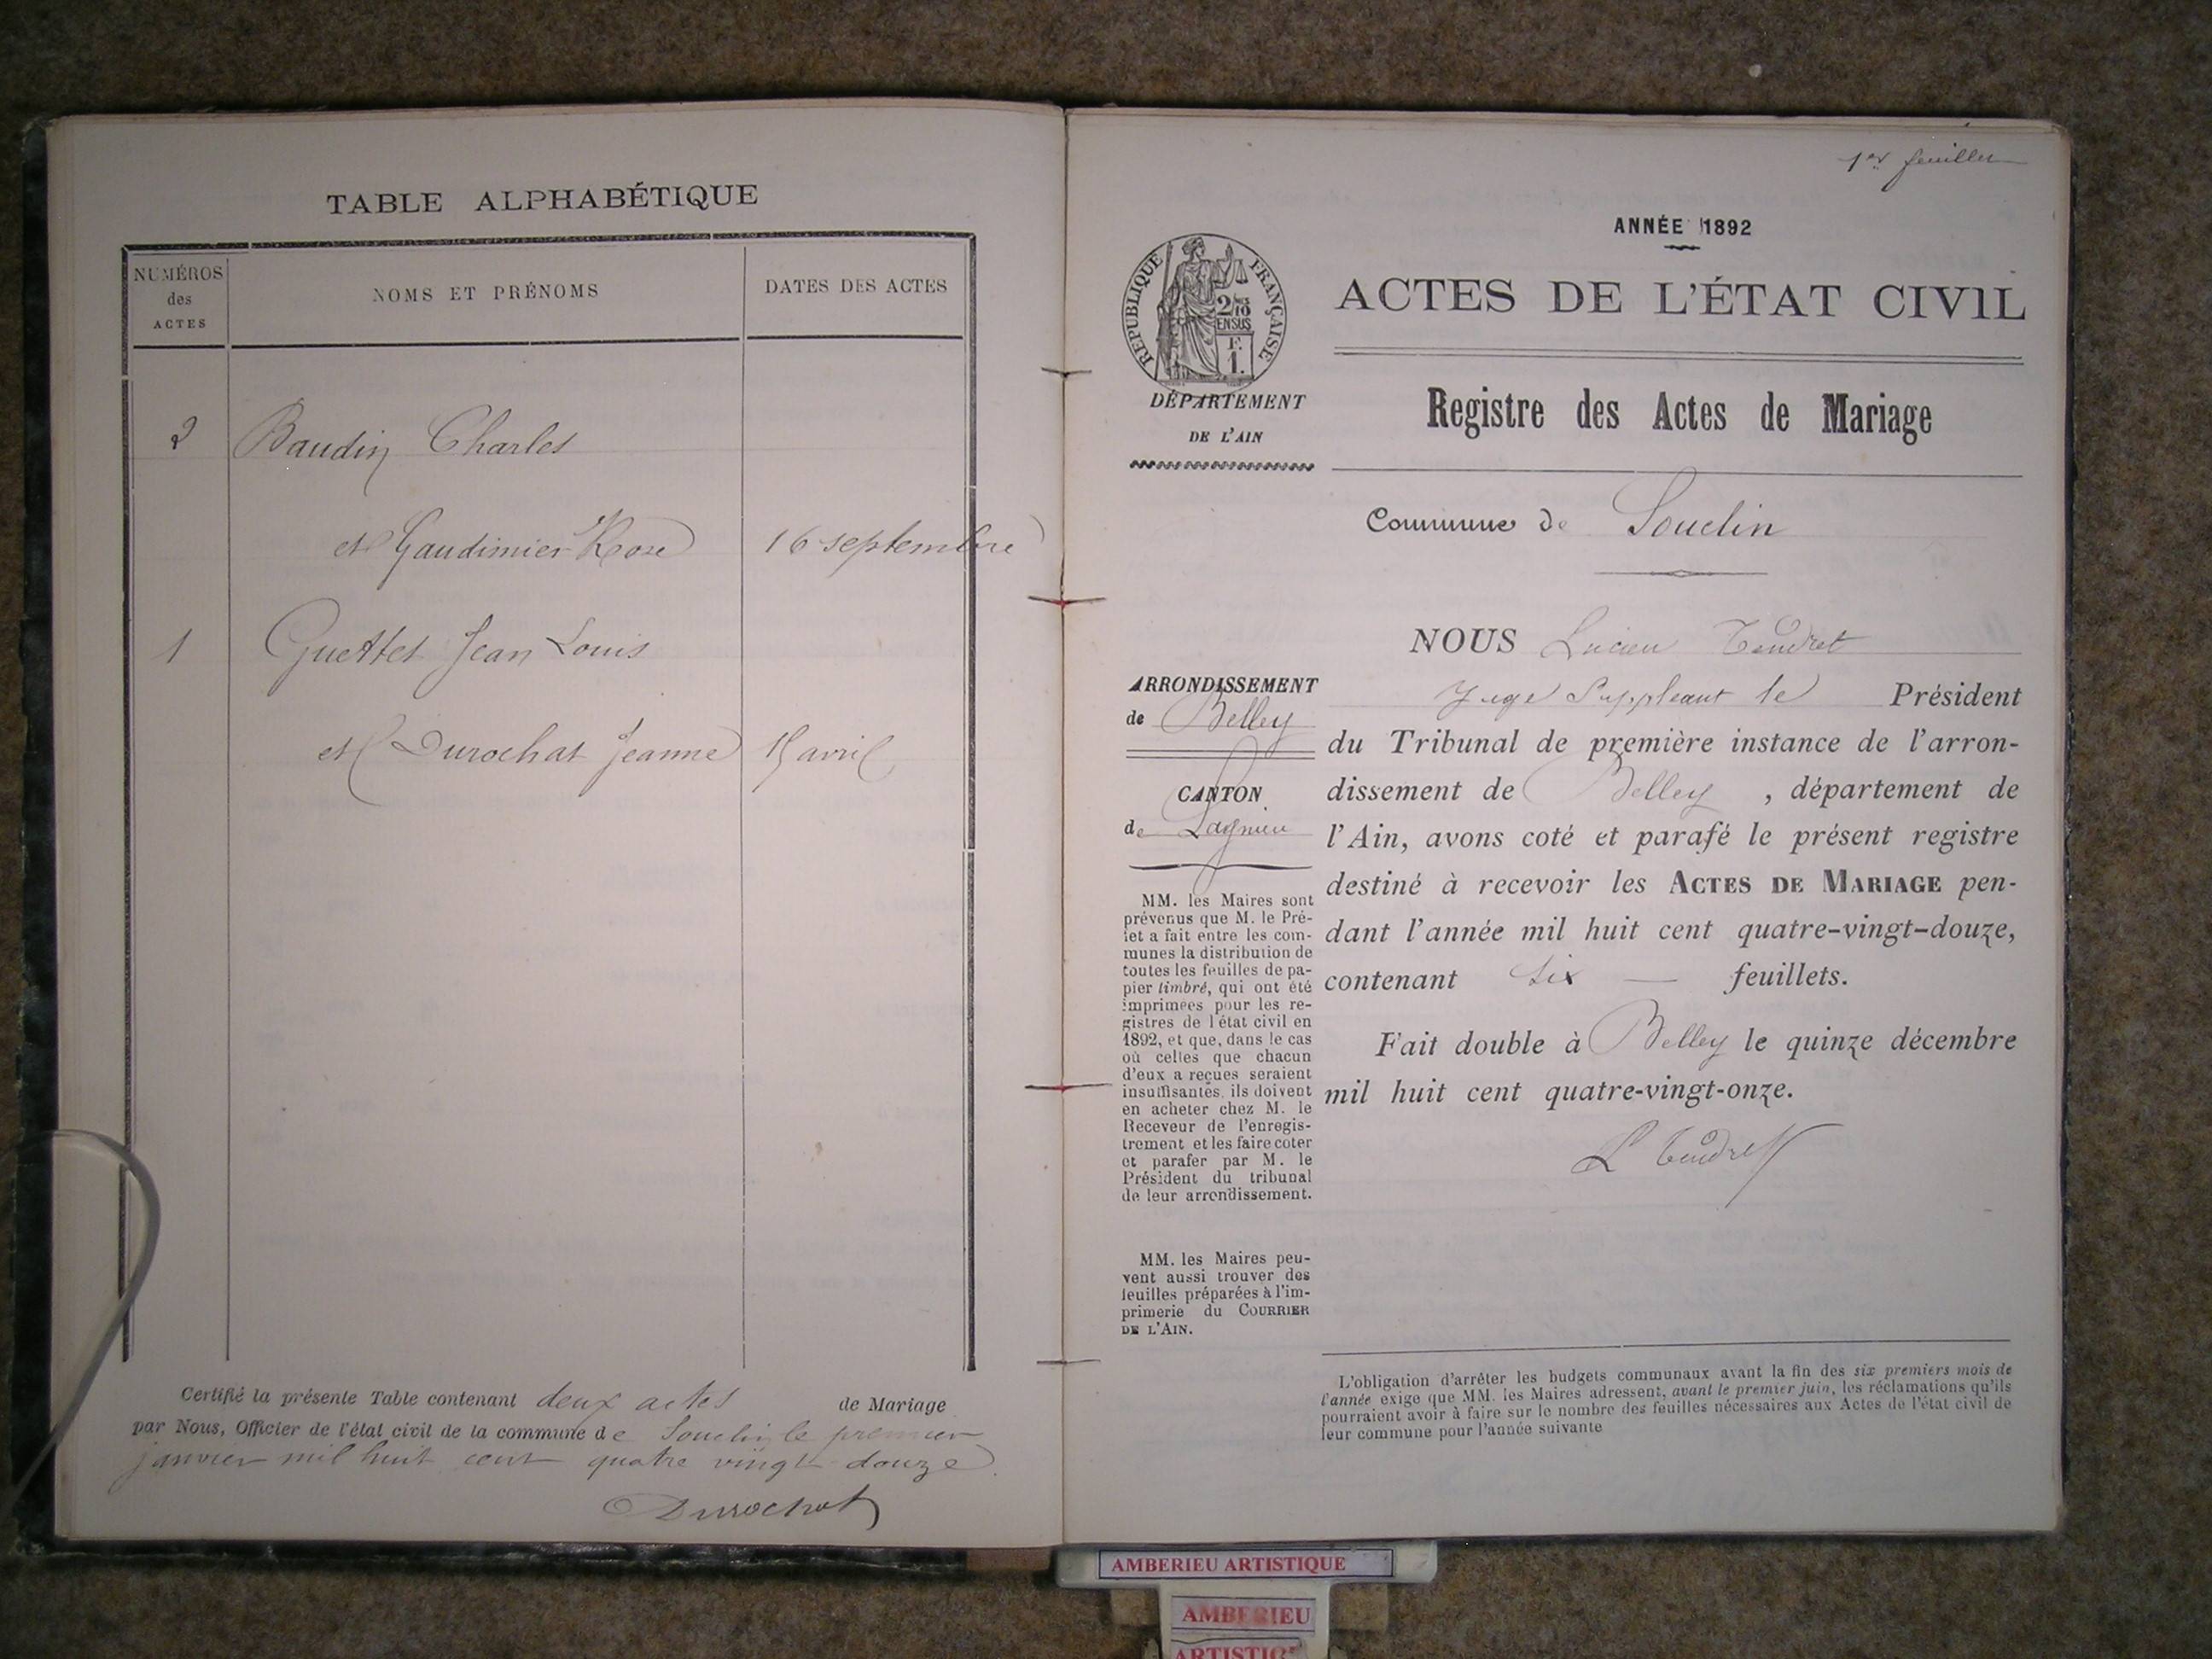 TABLE ALPHABÉTIQUE
NUMÉROS des ACTES
NOMS ET PRÉNOMS
DATES DES ACTES
2 Baudin Charles
et Gaudimier Rose 16 septembre
1 Guettet Jean Louis
et Durochat Jeanne 15 avril
Certifié la présente Table contenant deux actes de Mariage
par Nous, Officier de l'état civil de la commune de Souclin le premier
janvier mil huit cent quatre vingt douze.
Durochat
1er feuillet
ANNÉE 1892
RÉPUBLIQUE FRANÇAISE
2/10
EN SUS
F.
1.
ACTES DE L'ÉTAT CIVIL
DÉPARTEMENT
DE L'AIN
Registre des Actes de Mariage
Commune de Souclin
ARRONDISSEMENT
de Belley
CANTON
de Lagnieu
MM. les Maires sont
prévenus que M. le Pré-
fet a fait entre les com-
munes la distribution de
toutes les feuilles de pa-
pier timbré, qui ont été
imprimées pour les re-
gistres de l'état civil en
1892, et que, dans le cas
où celles que chacun
d'eux a reçues seraient
insuffisantes, ils doivent
en acheter chez M. le
Receveur de l'enregis-
trement et les faire coter
et parafer par M. le
Président du tribunal
de leur arrondissement.
MM. les Maires peu-
vent aussi trouver des
feuilles préparées à l'im-
primerie du COURRIER
DE L'AIN.
NOUS Lucien Tendret
Juge Suppléant le Président
du Tribunal de première instance de l'arron-
dissement de Belley, département de
l'Ain, avons coté et parafé le présent registre
destiné à recevoir les ACTES DE MARIAGE pen-
dant l'année mil huit cent quatre-vingt-douze,
contenant six — feuillets.
Fait double à Belley le quinze décembre
mil huit cent quatre-vingt-onze.
L Tendret
L'obligation d'arrêter les budgets communaux avant la fin des six premiers mois de
l'année exige que MM. les Maires adressent, avant le premier juin, les réclamations qu'ils
pourraient avoir à faire sur le nombre des feuilles nécessaires aux Actes de l'état civil de
leur commune pour l'année suivante
AMBERIEU ARTISTIQUE
AMBERIEU
ARTISTIQ